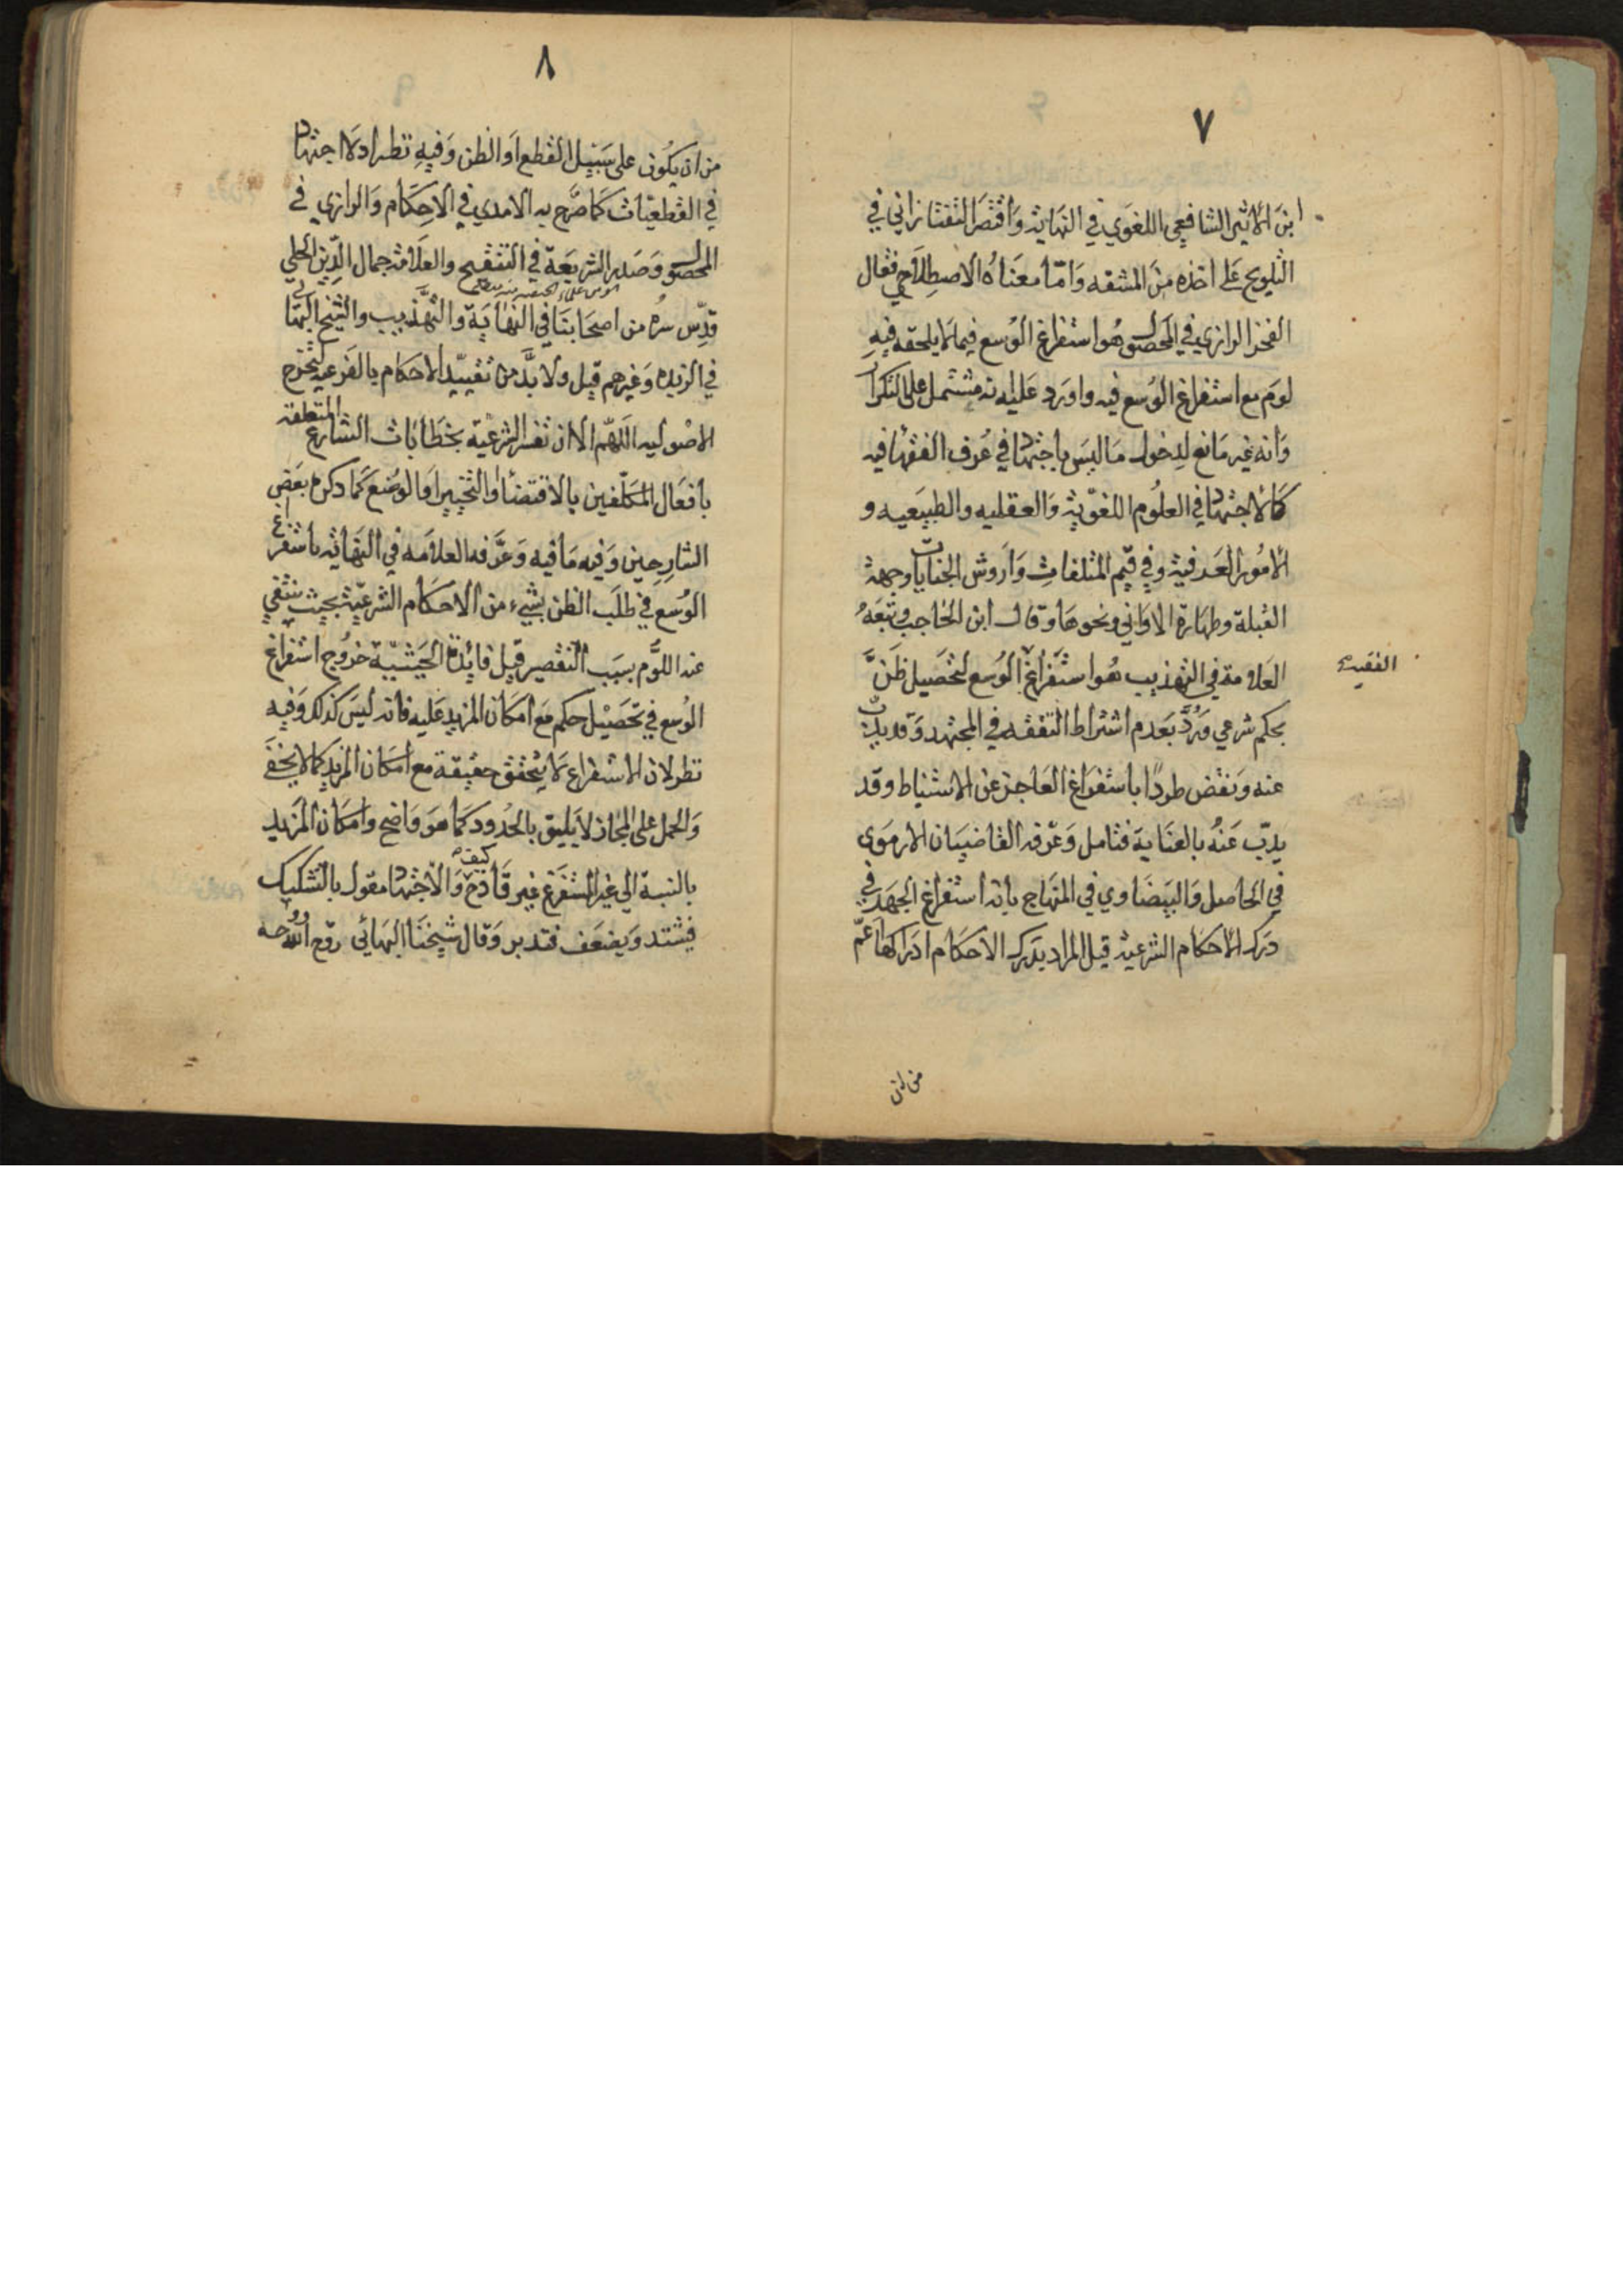 ٧
ابن الاثير الشافعي اللغوي في النهاية واقتصر التفتازاني في
التلويح على اخذه من المشقه واما معناه الاصطلاحي فقال
الفخر الرازي في المحصول هو استفراغ الوسع فيما لا يلحقه فيه
لوم مع استفراغ الوسع فيه واورد عليه انه مشتمل على التكرار
وانه غير مانع لدخول ما ليس باجتهاد في عرف الفقها فيه
كالاجتهاد في العلوم اللغوية والعقليه والطبيعيه و
الامور العرفية وفي قيم المتلفات واروش الجنايات وجهة
القبلة وطهارة الاواني ونحوها وقال ابن الحاجب وتبعه
العلامة في التهذيب هو استفراغ الوسع لتحصيل ظن
الفقيه
بحكم شرعي ورد بعدم اشتراط التفقه في المجتهد وقد يذب
عنه ونقض طردا باستفراغ العاجز عن الاستنباط وقد
يذب عنه بالعناية فتامل وعرفه القاضيان الارموى
في الحاصل والبيضاوي في المنهاج بانه استفراغ الجهد في
درك الاحكام الشرعية قيل المراد بدرك الاحكام ادراكها اعم
من ان
٨
من ان يكون على سبيل القطع او الظن وفيه نظر اذ لا اجتهاد
في القطعيات كما صرح به الامدي في الاحكام والرازي في
المحصول وصدر الشريعة في التنقيح والعلامة جمال الدين الحلي
قدس سره من اصحابنا في النهاية والتهذيب والشيخ البهائي
في الزبده وغيرهم قيل ولا بد من تقييد الاحكام بالفرعيه لتخرج
الاصوليه اللهم الا ان تفسر الشرعية بخطابات الشارع المتعلقة
بافعال المكلفين بالاقتضا او التخيير او الوضع كما ذكره بعض
الشارحين وفيه ما فيه وعرفه العلامه في النهاية باستفراغ
الوسع في طلب الظن بشيء من الاحكام الشرعية بحيث ينتفي
عنه اللوم بسبب التقصير قيل فائدة الحيثية خروج استفراغ
الوسع في تحصيل حكم مع امكان المزيد عليه فانه ليس كذلك وفيه
نظر لان الاستفراغ لا يتحقق حقيقة مع امكان المزيد كما لا يخفى
والحمل على المجاز لا يليق بالحدود كما هو واضح وامكان المزيد
بالنسبة الى غير المستفرغ غير قادح كيف والاجتهاد مقول بالتشكيك
فيشتد ويضعف فتدبر وقال شيخنا البهائي روح الله روحه